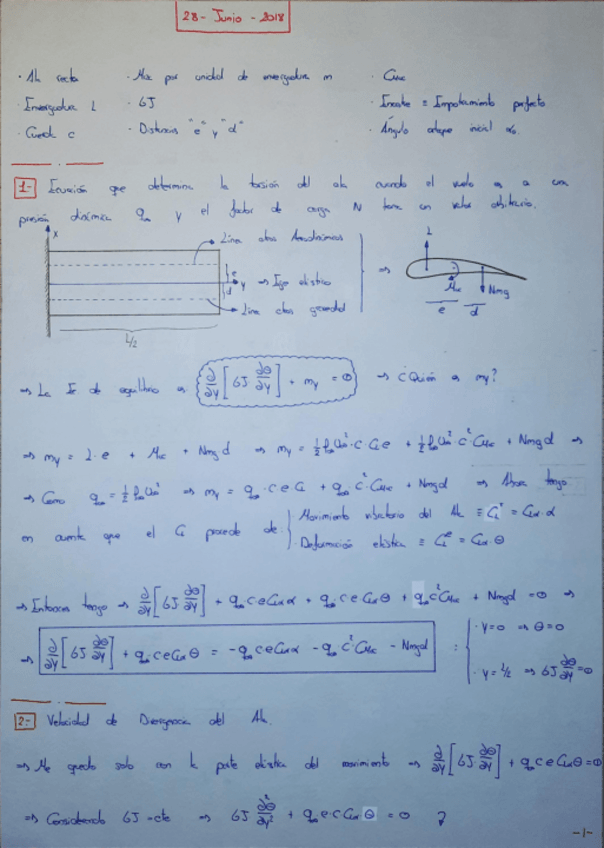 28 - Junio - 2018
· Ala recta · Masa por unidad de envergadura m · CMac
· Envergadura L · GJ · Encastre ≡ Empotramiento perfecto
· Cuerda c · Distancias "e" y "d" · Ángulo ataque inicial α₀
1- Ecuación que determina la torsión del ala cuando el vuelo es a una
presión dinámica q∞ y el factor de carga N toma un valor arbitrario.
x
Línea ctros Aerodinámicos
e
y ⇒ Eje elástico
d
Línea ctros gravedad
L/2
⇒
L
Mac
Nmg
e d
⇒ La Ec de equilibrio es ∂/∂y [GJ ∂θ/∂y] + my = 0 ⇒ ¿Quién es my?
⇒ my = L·e + Mac + Nmgd ⇒ my = ½ρ∞U∞²·c·CL·e + ½ρ∞U∞²·c²·CMac + Nmgd ⇒
⇒ Como q∞ = ½ρ∞U∞² ⇒ my = q∞·c e CL + q∞ c² CMac + Nmgd ⇒ Ahora tengo
en cuenta que el CL procede de: { · Movimiento vibratorio del Ala ≡ CLʳ = CLα·α
· Deformación elástica ≡ CLᵉ = CLα·θ
⇒ Entonces tengo ⇒ ∂/∂y [GJ ∂θ/∂y] + q∞ c e CLα α + q∞ c e CLα θ + q∞ c² CMac + Nmgd = 0 ⇒
⇒ ∂/∂y [GJ ∂θ/∂y] + q∞ c e CLα θ = -q∞ c e CLα α - q∞ c² CMac - Nmgd : { · y=0 ⇒ θ=0
· y = L/2 ⇒ GJ ∂θ/∂y = 0
2- Velocidad de Divergencia del Ala.
⇒ Me quedo solo con la parte elástica del movimiento ⇒ ∂/∂y [GJ ∂θ/∂y] + q∞ c e CLα θ = 0
⇒ Considerando GJ = cte ⇒ GJ ∂²θ/∂y² + q∞ e c CLα θ = 0
-1-